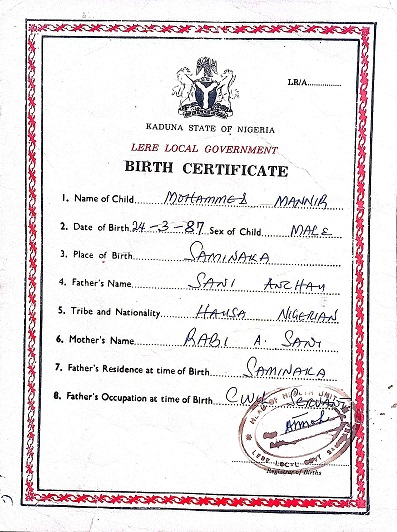 LR/A..............
KADUNA STATE OF NIGERIA
LERE LOCAL GOVERNMENT
BIRTH CERTIFICATE
1. Name of Child MOHAMMED MANNIR
2. Date of Birth 24-3-87 Sex of Child MALE
3. Place of Birth SAMINAKA
4. Father's Name SANI ANCHAU
5. Tribe and Nationality HAUSA NIGERIAN
6. Mother's Name RABI A. SANI
7. Father's Residence at time of Birth SAMINAKA
8. Father's Occupation at time of Birth CIVIL SERVANT
LERE LOCAL GOVT
Registrar of Births